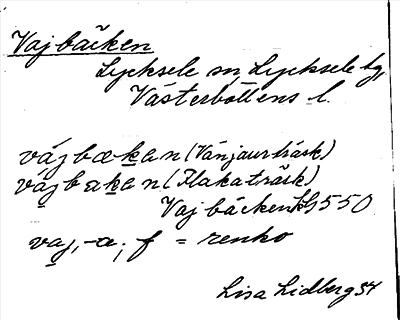 Vajbäcken
Lycksele sn, Lycksele tg,
Västerbottens l.
vájbækan (Vänjaurträsk)
vájbækan (Flakaträsk)
Vajbäcken kg 550
vaj, -a; f = renko
Lisa Lidberg 34